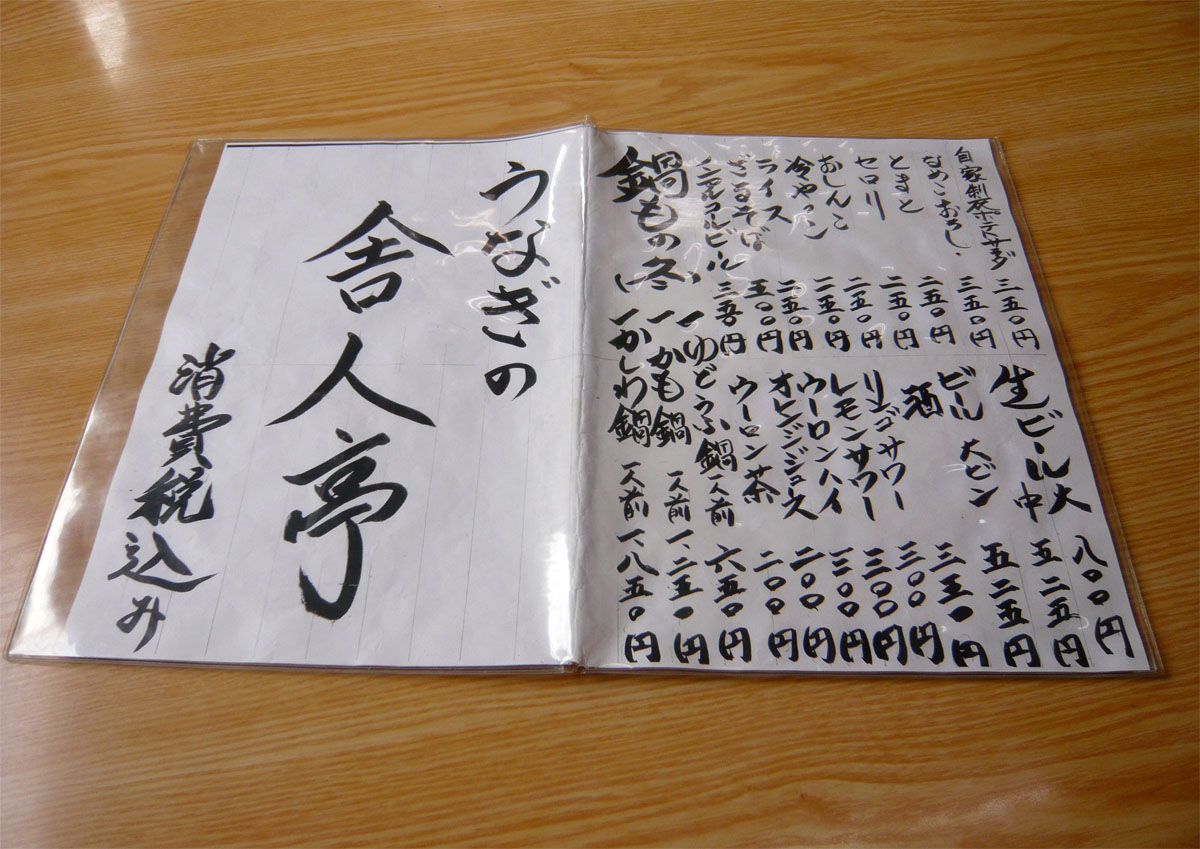 自家製ポテトサラダ 三五〇円
なめこおろし 三五〇円
とまと 二五〇円
セロリ 二五〇円
おしんこ 二五〇円
冷やっこ 二五〇円
ライス 二五〇円
ざるそば 五〇〇円
ノンアルコールビール 三五〇円
生ビール大 八〇〇円
中 五二五円
ビール 大ビン 五二五円
酒 三五〇円
リンゴサワー 三〇〇円
レモンサワー 三〇〇円
ウーロンハイ 三〇〇円
オレンジジュース 二〇〇円
ウーロン茶 二〇〇円
鍋もの冬
一ゆどうふ鍋 一人前 六五〇円
一かも鍋 一人前 一、二五〇円
一かしわ鍋 一人前 一、八五〇円
うなぎの
舎人亭
消費税込み